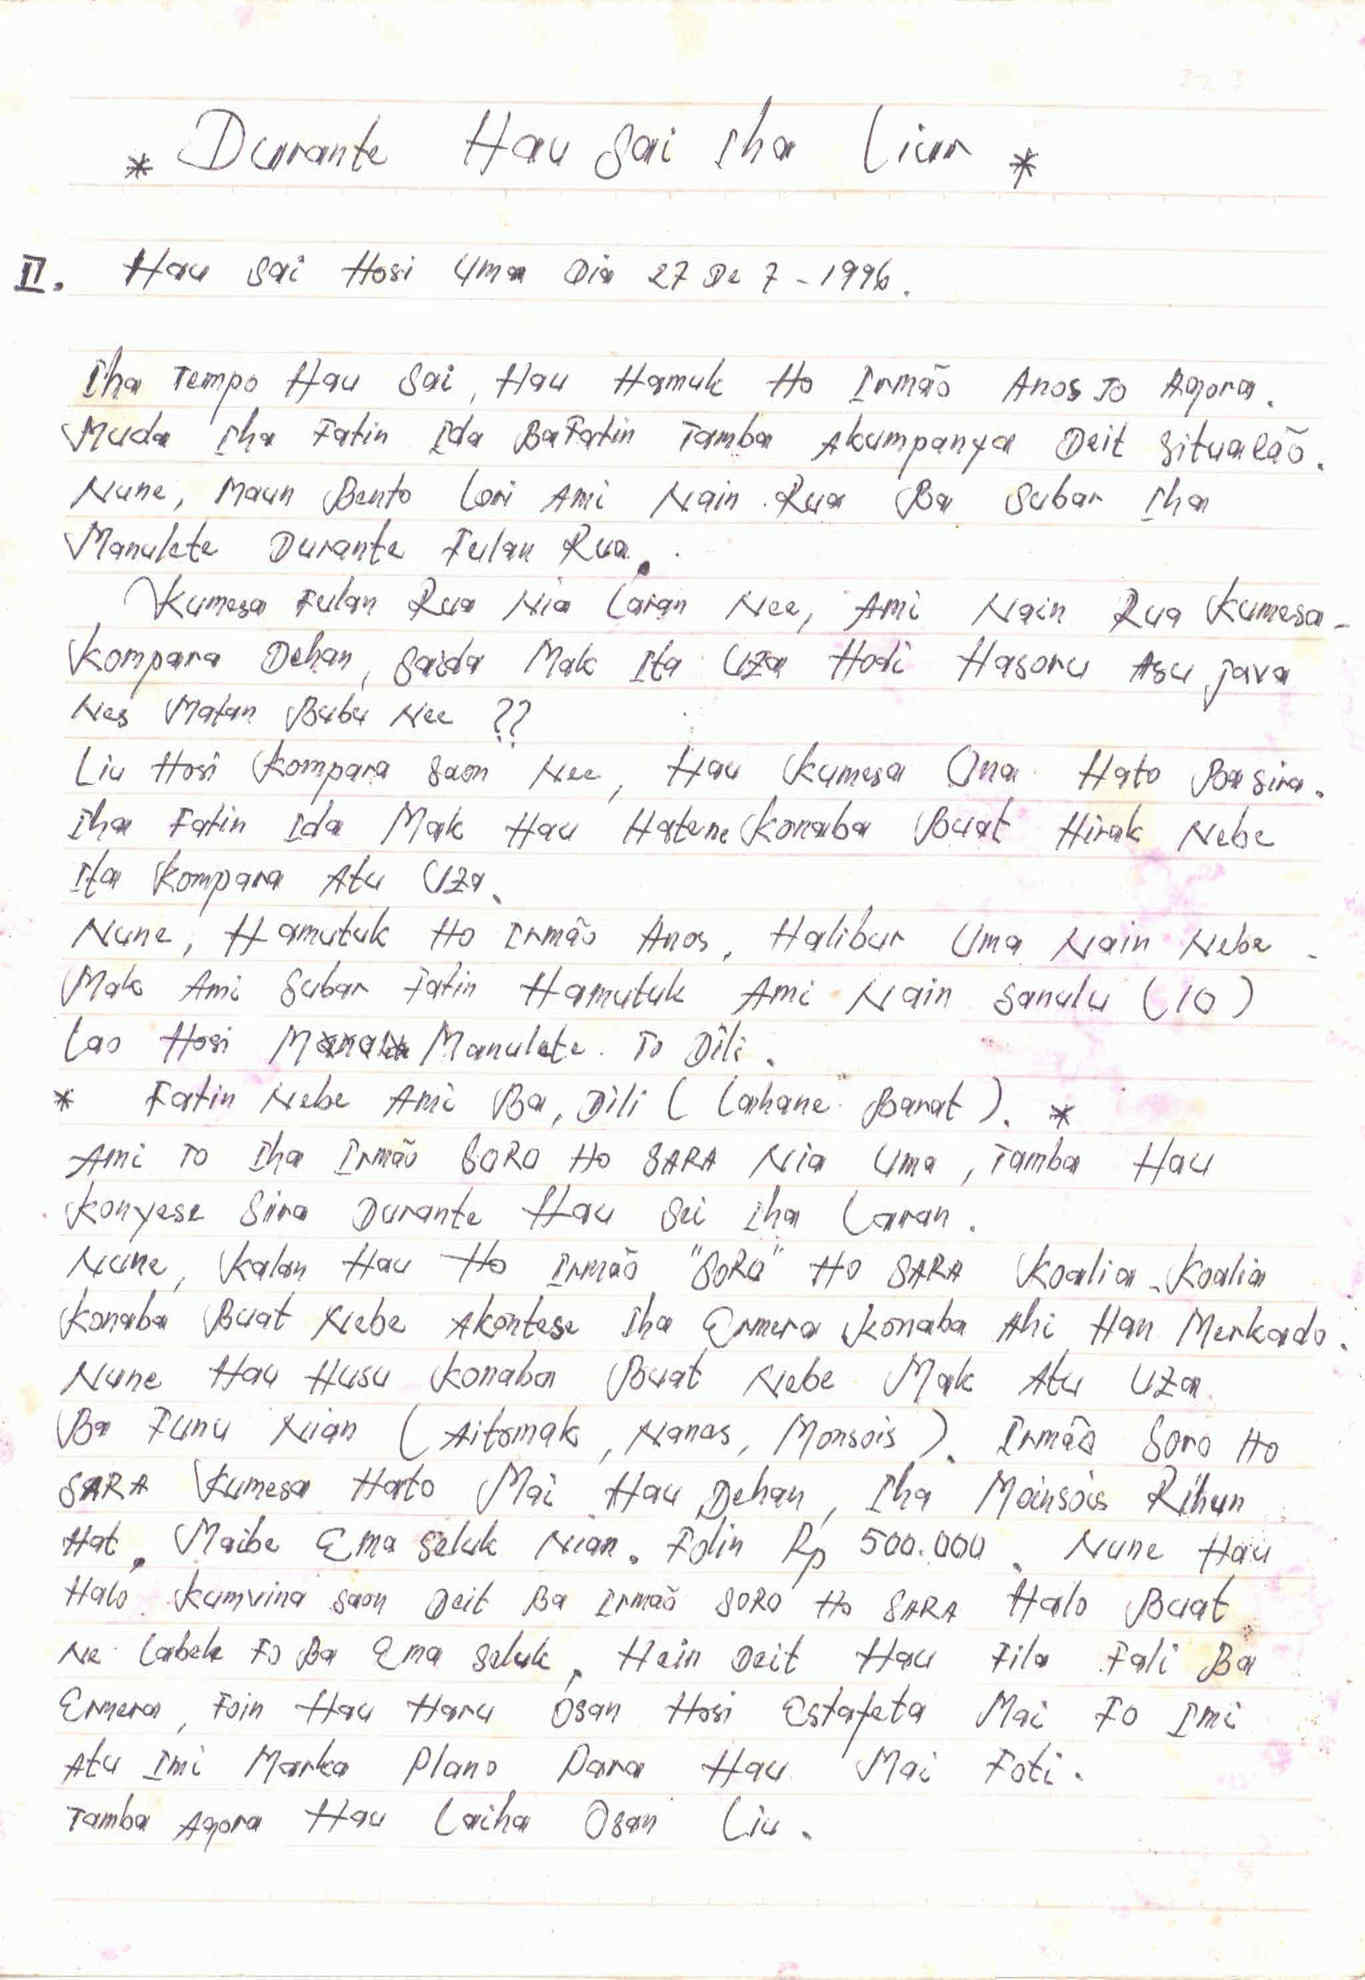 * Durante Hau Sai Iha Liur *
II. Hau Sai Hosi Uma Dia 27 De 7-1996.
Iha Tempo Hau Sai, Hau Hamuk Ho Irmão Anos To Agora.
Muda Iha Fatin Ida BaFatin Tamba Akumpanya Deit Situasão.
Nune, Maun Bento Lori Ami Nain Rua Ba Subar Iha
Manulete Durante Fulan Rua.
Kumesa Fulan Rua Nia Laran Nee, Ami Nain Rua Kumesa-
Kompara Dehan, Saida Mak Ita Uza Hodi Hasoru Asu Java
Nes Matan Bubu Nee ??
Liu Hosi Kompara Saon Nee, Hau Kumesa Ona Hato Ba Sira.
Iha Fatin Ida Mak Hau Hatene Konaba Buat Hirak Nebe
Ita Kompara Atu Uza.
Nune, Hamutuk Ho Irmão Anos, Halibur Uma Nain Nebe -
Mak Ami Subar Fatin Hamutuk Ami Nain Sanulu (10)
Lao Hosi Manulete To Dili.
* Fatin Nebe Ami Ba, Dili ( Lahane Barat ). *
Ami To Iha Irmão SORO Ho SARA Nia Uma, Tamba Hau
Konyese Siira Durante Hau Sei Iha Laran.
Nune, Kalan Hau Ho Irmão "SORO" Ho SARA Koalia-Koalia
Konaba Buat Nebe Akontese Iha Ermera Konaba Ahi Han Merkado.
Nune Hau Husu Konaba Buat Nebe Mak Atu Uza
Ba Funu Nian ( Aitomak, Nanas, Monsois ). Irmão Soro Ho
SARA Kumesa Hato Mai Hau Dehan, Iha Moinsois Rihun
Hat. Maibe Ema Seluk Nian. Folin Rp 500.000. Nune Hau
Halo Kumvina Saon Deit Ba Irmão SORO Ho SARA Halo Buat
Ne Labele Fo Ba Ema Seluk, Hein Deit Hau Fila Fali Ba
Ermera, Foin Hau Haru Osan Hosi Estafeta Mai Fo Imi
Atu Imi Marka Plano Para Hau Mai Foti.
Tamba Agora Hau Laiha Osan Liu.